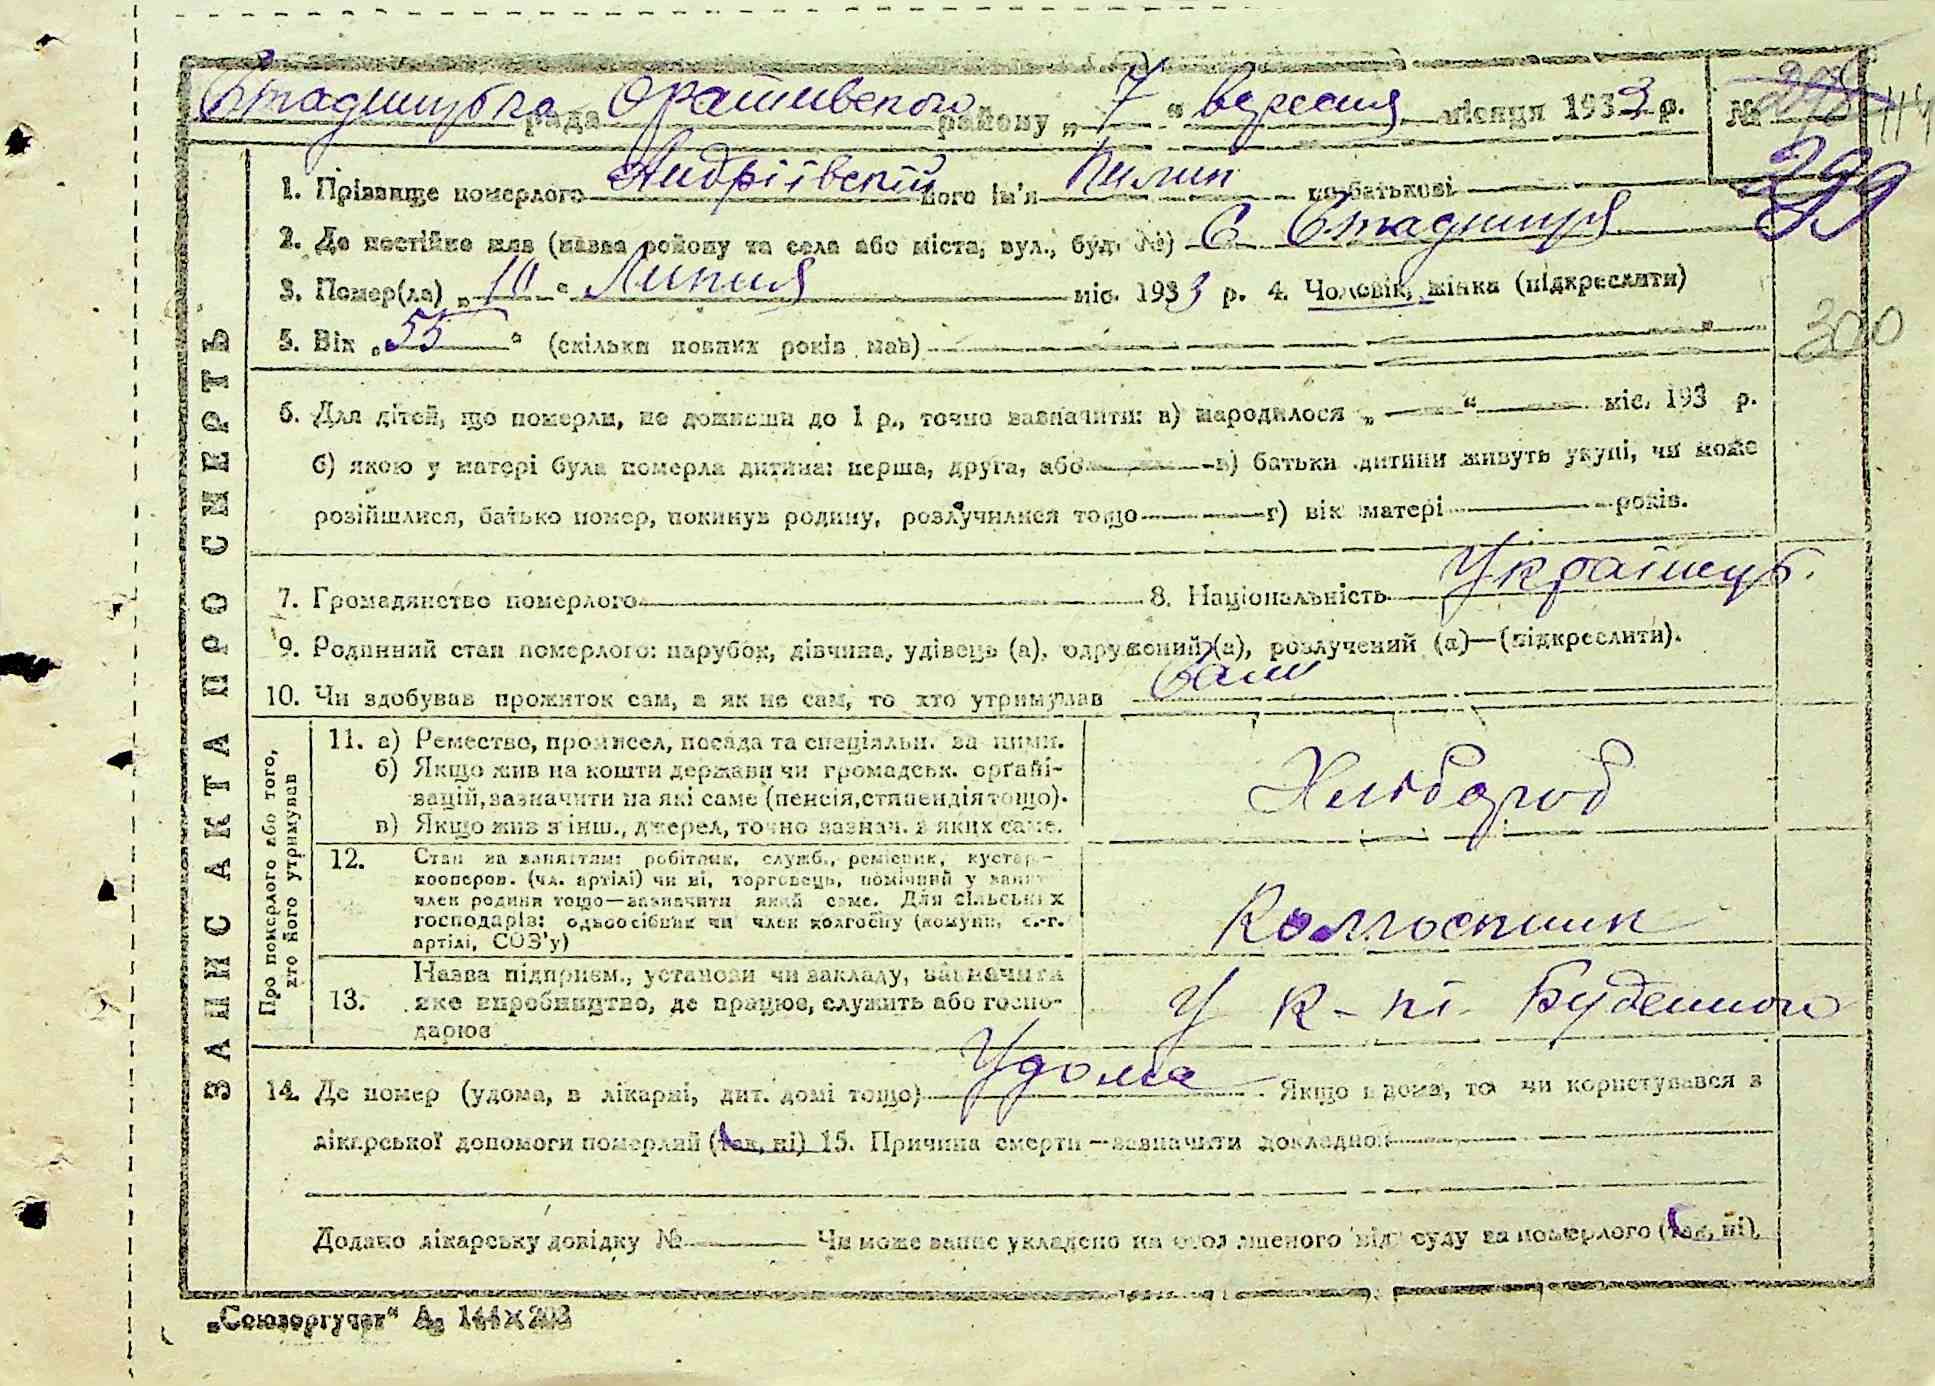 Стадницька рада Оратівського району „ 7 “ вересня місяця 1933 р. № 298
299
1. Прізвище померлого Андріївський його ім'я Пилип по-батькові
2. Де постійно жив (назва району та села або міста, вул., буд. №) С Стадниця
3. Помер(ла) „ 10 “ Липня міс. 1933 р. 4. Чоловік, жінка (підкреслити)
300
5. Вік „ 55 “ (скільки повних років мав)
6. Для дітей, що померли, не доживши до 1 р., точно зазначити: а) народилося „ “ міс. 193 р.
б) якою у матері була померла дитина: перша, друга, або в) батьки дитини живуть укупі, чи може
розійшлися, батько помер, покинув родину, розлучилися тощо г) вік матері років.
7. Громадянство померлого 8. Національність Українець.
9. Родинний стан померлого: парубок, дівчина, удівець (а), одружений (а), розлучений (а)—(підкреслити).
10. Чи здобував прожиток сам, а як не сам, то хто утримував Сам
ЗАПИС АКТА ПРО СМЕРТЬ
Про померлого або того,
хто його утримував
11. а) Ремество, промисел, посада та спеціяльн. за ними.
б) Якщо жив на кошти держави чи громадськ. організацій, зазначити на які саме (пенсія, стипендія тощо).
в) Якщо жив з інш., джерел, точно зазнач. з яких саме.
Хлібороб
12. Стан за заняттям: робітник, служб., ремісник, кустар-
кооперов. (чл. артілі) чи ні, торговець, помічний у занят
член родини тощо—зазначити який саме. Для сільських
господарів: одноосібник чи член колгоспу (комуни, с.-г.
артілі, СОЗ'у)
Колгоспник
13. Назва підприєм., установи чи закладу, зазначити
яке виробництво, де працює, служить або госпо-
дарює
У к-пі Буденного
14. Де помер (удома, в лікарні, дит. домі тощо) Удома Якщо вдома, то чи користувався з
лікарської допомоги померлий (так, ні) 15. Причина смерти—зазначити докладно:
Додано лікарську довідку № Чи може запис укладено на оголошеного від суду за померлого (так, ні).
„Союзоргучет“ А5 144×203